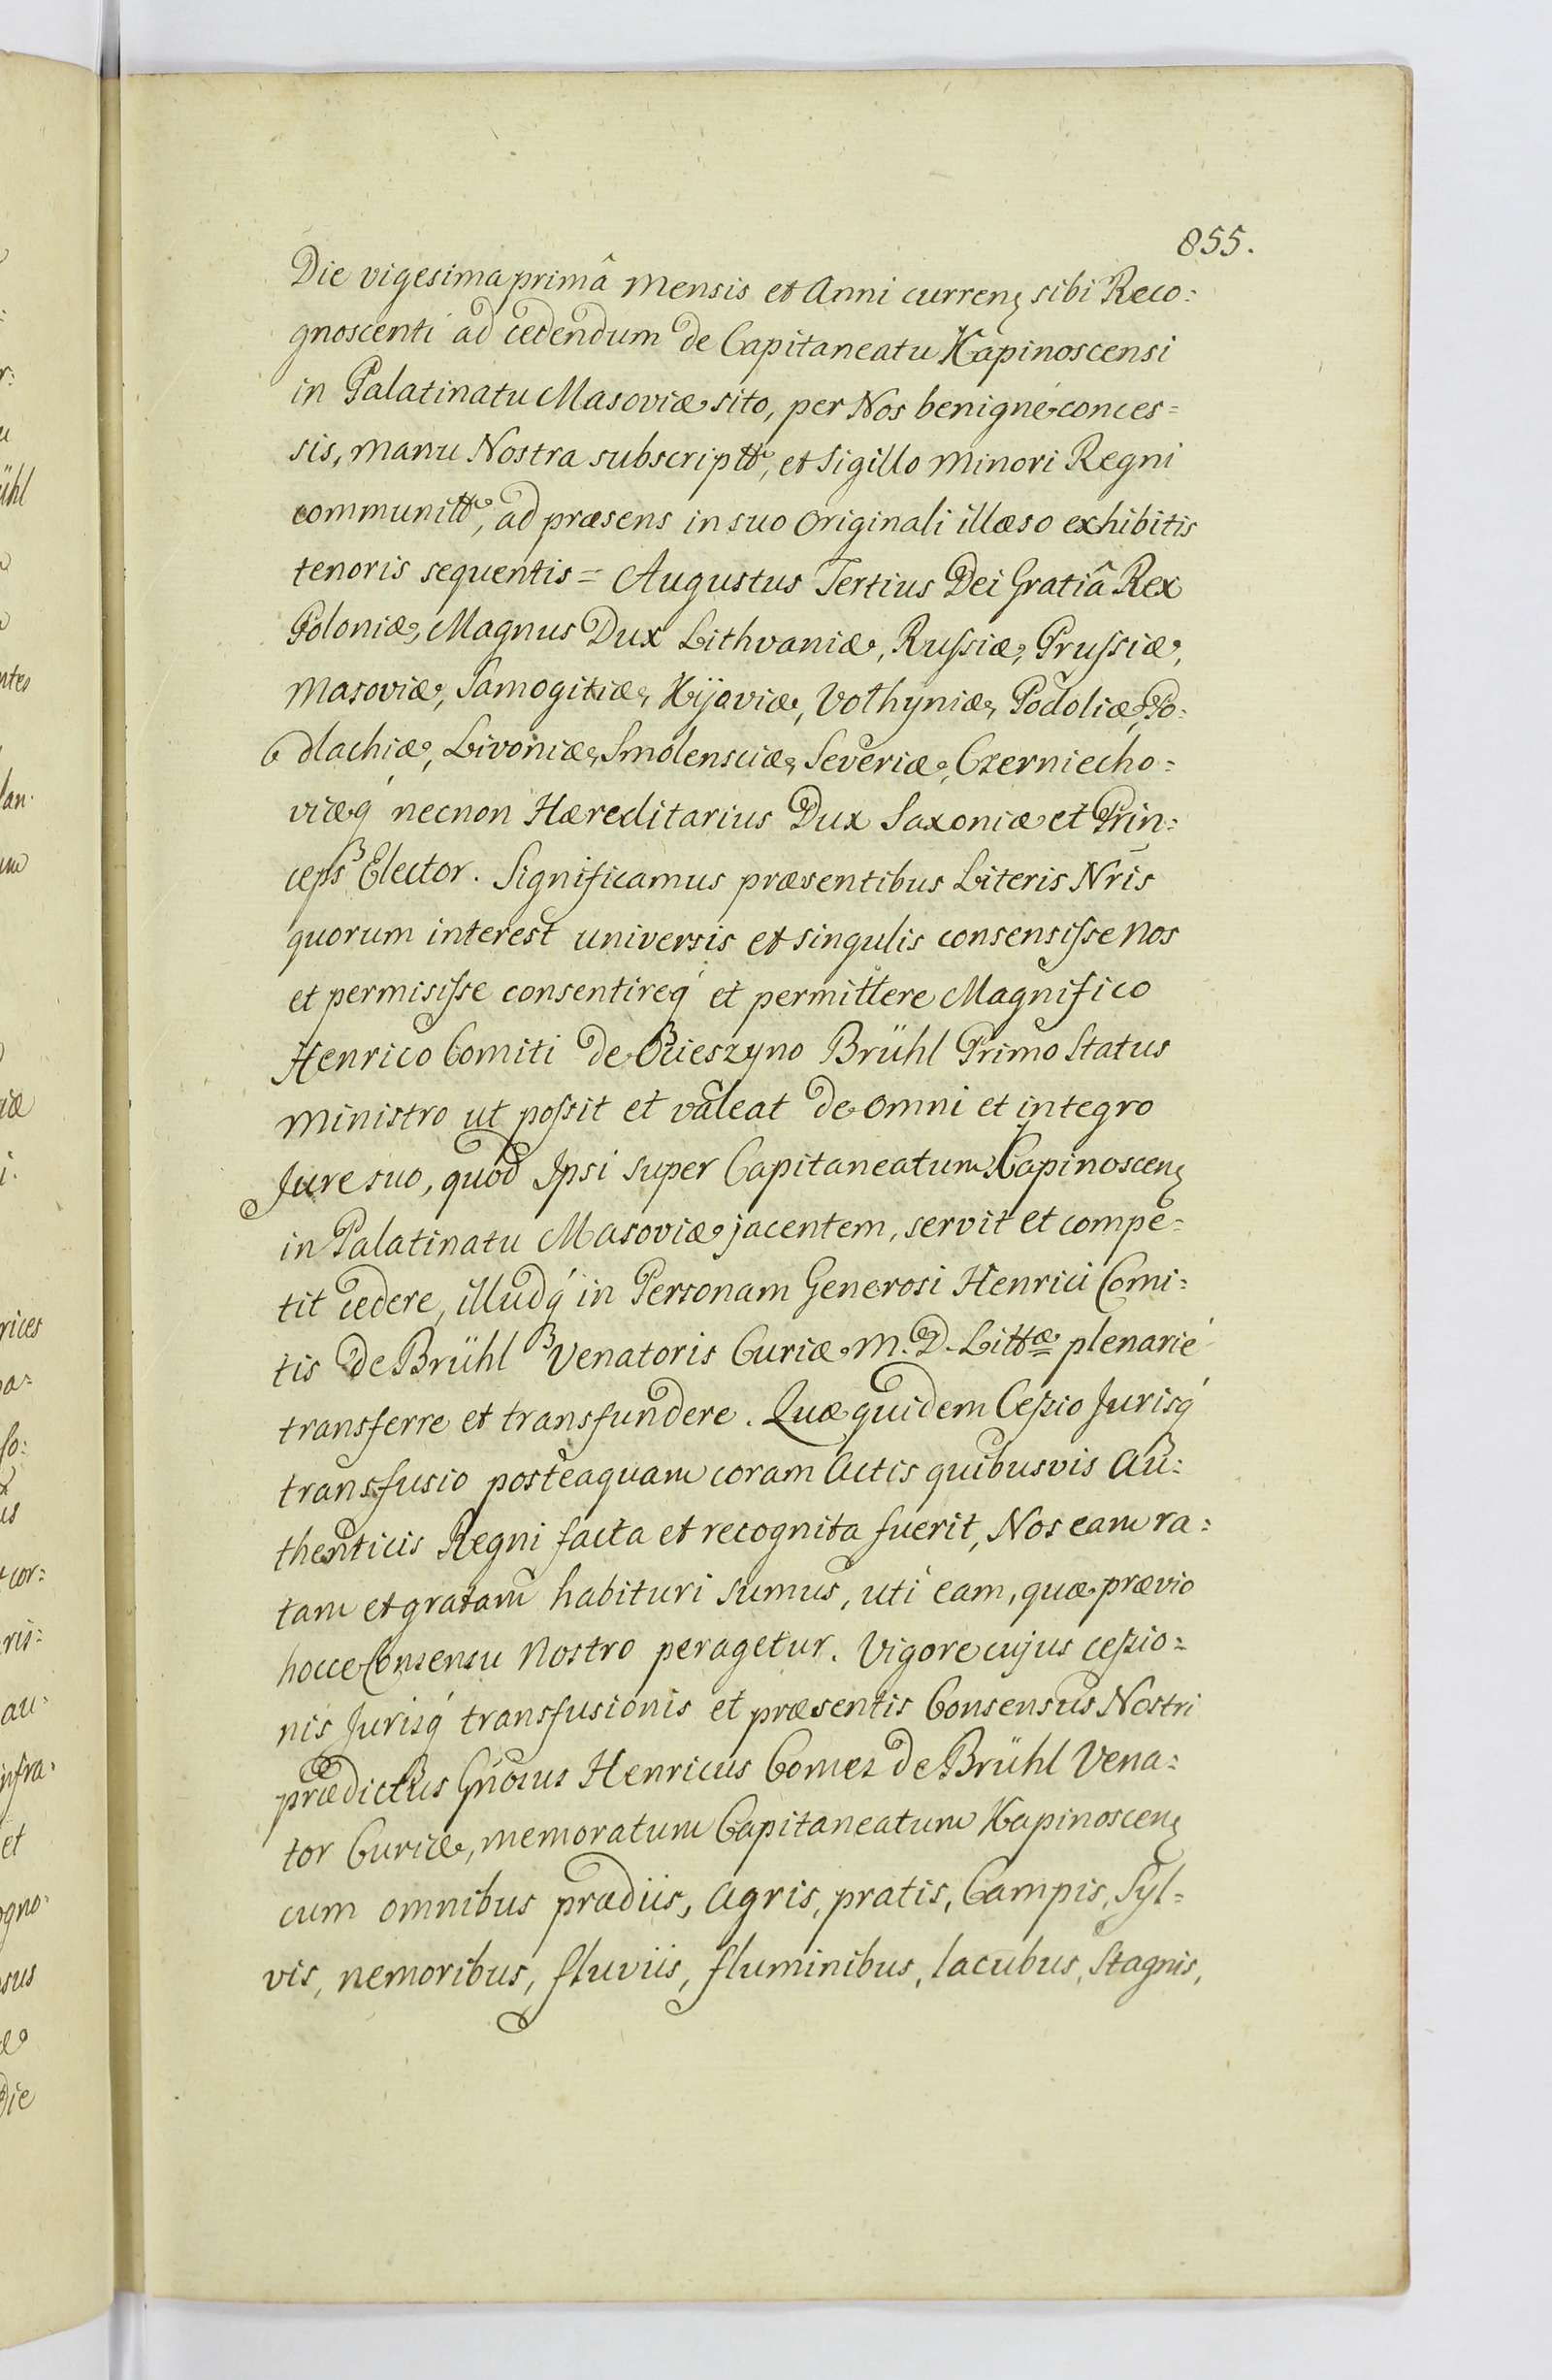 855.
Die vigesima primâ Mensis et Anni curren̄ sibi Reco:
gnoscenti ad cedendum de Capitaneatu Kapinoscensi
in Palatinatu Masoviæ sito, per Nos benigné conces=
sis, manu Nostra subscriptt, et Sigillo Minori Regni
communitt, ad præsens in suo Originali illæso exhibitis
tenoris sequentis = Augustus Tertius Dei Gratiâ Rex
Poloniæ, Magnus Dux Lithvaniæ, Russiæ, Prussiæ,
Masoviæ, Samogitiæ, Kijoviæ, Volhyniæ, Podoliæ, Po:
dlachiæ, Livoniæ, Smolensciæ, Severiæ, Czerniecho=
viæq́ necnon Hæreditarius Dux Saxoniæ et Prin=
ceps Elector. Significamus præsentibus Literis Nr̄is
quorum interest universis et singulis consensisse Nos
et permisisse consentireq́ et permittere Magnifico
Henrico Comiti de Cieszyno Brühl Primo Status
Ministro ut possit et valeat de omni et integro
Jure suo, quod Ipsi super Capitaneatum Kapinoscen̄
in Palatinatu Masoviæ jacentem, servit et compe=
tit cedere, illudq́ in Personam Generosi Henrici Comi=
tis de Brühl Venatoris Curiæ M. D. Littæ plenarié
transferre et transfundere. Quæ quidem Cessio Jurisq́
transfusio posteaquam coram Actis quibusvis Au=
thenticis Regni facta et recognita fuerit, Nos eam ra=
tam et gratam habituri sumus, uti eam, quæ prævio
hocce Consensu Nostro peragetur. Vigore cujus cessio=
nis Jurisq́ transfusionis et præsentis Consensus Nostri
prædictus Gn̄osus Henricus Comes de Brühl Vena=
tor Curiæ, memoratum Capitaneatum Kapinoscen̄
cum omnibus prædiis, Agris, pratis, Campis, Syl=
vis, nemoribus, fluviis, fluminibus, lacubus, Stagnis,